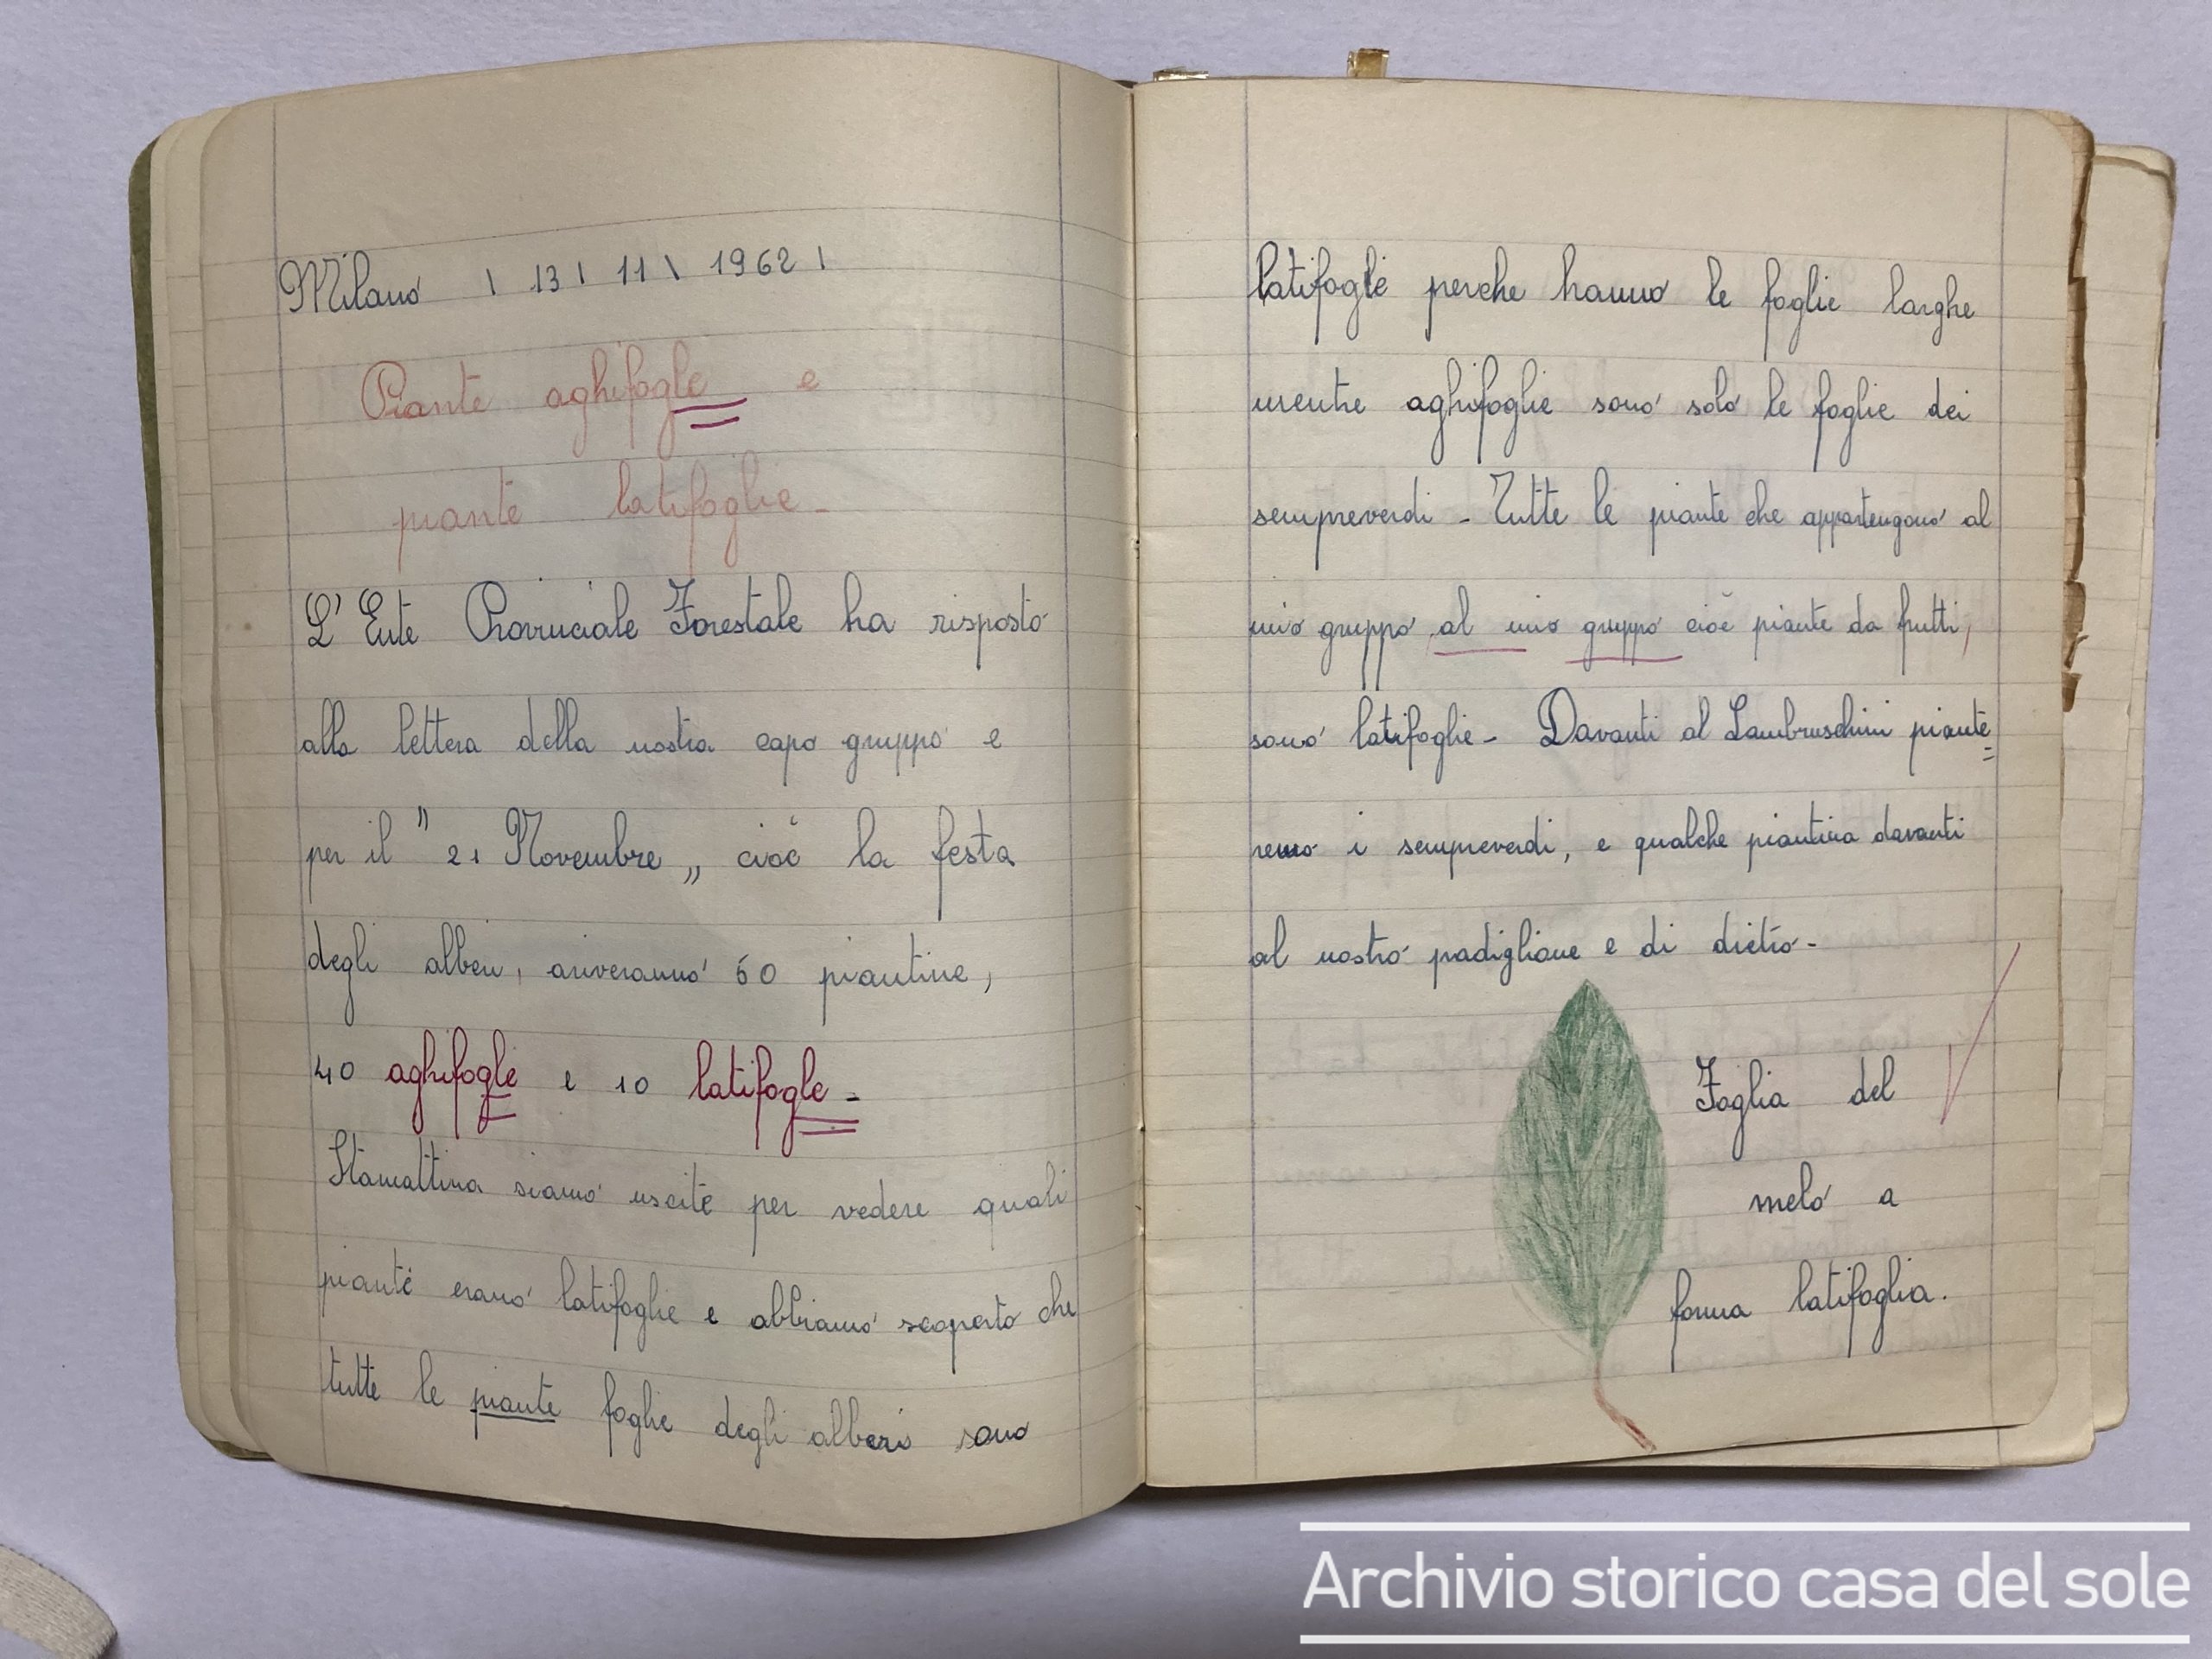 Milano | 13 | 11 \ 1962 |
Piante aghifogle e
piante latifoglie-
L'Ente Provinciale Forestale ha risposto
alla lettera della nostra capo gruppo e
per il " 21 Novembre „ cioè la festa
degli alberi, ariveranno 60 piantine,
40 aghifogle e 10 latifogle-
Stamattina siamo uscite per vedere quali
piante erano latifoglie e abbiamo scoperto che
tutte le piante foglie degli alberi sono
latifoglie perche hanno le foglie larghe
mentre aghifoglie sono solo le foglie dei
sempreverdi - Tutte le piante che appartengono al
mio gruppo al mio gruppo cioè piante da frutti,
sono latifoglie - Davanti al Lambruschini piante
remo i sempreverdi, e qualche piantina davanti
al nostro padiglione e di dietro-
Foglia del
melo a
forma latifoglia.
Archivio storico casa del sole